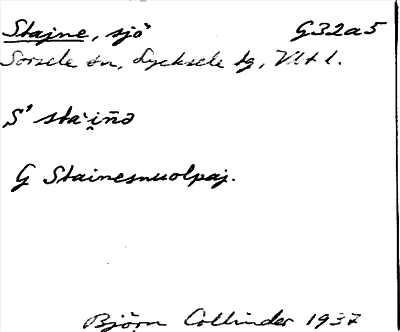 Stajne, sjö G32a5
Sorsele sn, Lycksele tg, Vbt l.
S' sta`i̯n̄ə
G Stainesnuolpaj.
Björn Collinder 1937